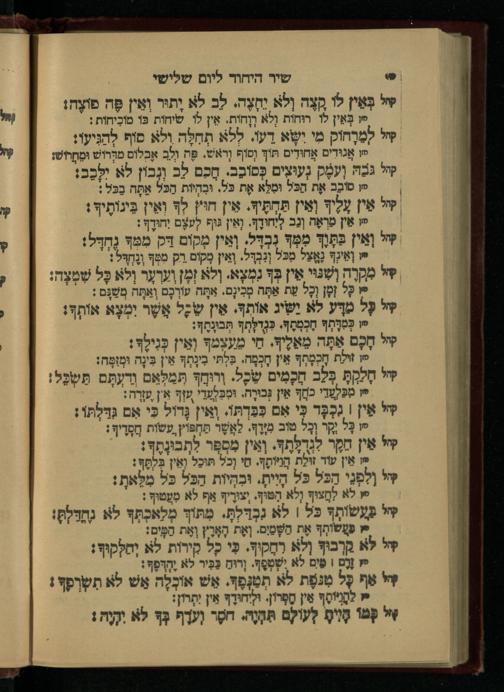 שיר היחוד ליום שלישי
קהל בְּאֵין לוֹ קָצֶה וְלֹא יֶחֱצֶה. לֵב לֹא יָתוּר וְאֵין פֶּה פּוֹצֶה:
חזן בְּאֵין לוֹ רוּחוֹת וְלֹא רְוָחוֹת. אֵין לוֹ שִׂיחוֹת בּוֹ מוֹכִיחוֹת:
קהל לְמֵרָחוֹק מִי יִשָּׂא דֵעוֹ. לְלֹא תְחִלָּה וְלֹא סוֹף לְהַגִּיעוֹ:
חזן אֲגוּדִים אֲחוּדִים תּוֹךְ וְסוֹף וָרֹאשׁ. פֶּה וְלֵב אֶבְלוֹם מִדְּרוֹשׁ וּמֵחֲרוֹשׁ:
קהל גֹּבַהּ וְעֹמֶק נְעוּצִים כְּסוֹבֵב. חֲכַם לֵב וְנָבוֹן לֹא יְלַבֵּב:
חזן סוֹבֵב אֶת הַכֹּל וּמָלֵא אֶת כֹּל. וּבִהְיוֹת הַכֹּל אַתָּה בַכֹּל:
קהל אֵין עָלֶיךָ וְאֵין תַּחְתֶּיךָ. אֵין חוּץ לְךָ וְאֵין בֵּינוֹתֶיךָ:
חזן אֵין מַרְאֶה וְגַב לְיִחוּדֶךָ. וְאֵין גּוּף לְעֹצֶם יִחוּדֶךָ:
קהל וְאֵין בַּתָּוֶךְ מִמְּךָ נִבְדָּל. וְאֵין מָקוֹם דַּק מִמְּךָ נֶחְדָּל:
חזן וְאֵינְךָ נֶאֱצָל מִכֹּל וְנִבְדָּל. וְאֵין מָקוֹם רֵק מִמְּךָ וְנֶחְדָּל:
קהל מִקְרֶה וְשִׁנּוּי אֵין בְּךָ נִמְצָא. וְלֹא זְמָן וְעַרְעַר וְלֹא כָל שִׁמְצָה:
חזן כָּל זְמָן וְכָל עֵת אַתָּה מְכִינָם. אַתָּה עוֹרְכָם וְאַתָּה מְשַׁנָּם:
קהל כָּל מַדָּע לֹא יַשִּׂיג אוֹתָךְ. אֵין שֵׂכֶל אֲשֶׁר יִמְצָא אוֹתָךְ:
חזן כְּמִדָּתְךָ חָכְמָתֶךָ. כִּגְדֻלָּתְךָ תְּבוּנָתֶךָ:
קהל חָכָם אַתָּה מֵאֵלֶיךָ. חַי מֵעַצְמְךָ וְאֵין כְּגִילֶךָ:
חזן זוּלַת חָכְמָתְךָ אֵין חָכְמָה. בִּלְתִּי בִינָתְךָ אֵין בִּינָה וּמְזִמָּה:
קהל חָלַקְתָּ בְּלֵב חֲכָמִים שֵׂכֶל. וְרוּחֲךָ תְּמַלְּאֵם וְדַעְתָּם תַּשְׂכֵּל:
חזן מִבַּלְעֲדֵי כֹחֲךָ אֵין גְּבוּרָה. וּמִבַּלְעֲדֵי עֻזְּךָ אֵין עֶזְרָה:
קהל אֵין ׀ נִכְבָּד כִּי אִם כִּבַּדְתּוֹ. וְאֵין גָּדוֹל כִּי אִם גִּדַּלְתּוֹ:
חזן כָּל יְקָר וְכָל טוֹב מִיָּדֶךָ. לַאֲשֶׁר תַּחְפּוֹץ עֲשׂוֹת חֲסָדֶיךָ:
קהל אֵין חֵקֶר לִגְדֻלָּתֶךָ. וְאֵין מִסְפָּר לִתְבוּנָתֶךָ:
חזן אֵין עוֹד זוּלַת הֲוָיוֹתֶךָ. חַי וְכֹל תּוּכַל וְאֵין בִּלְתֶּךָ:
קהל וְלִפְנֵי הַכֹּל כֹּל הָיִיתָ. וּבִהְיוֹת הַכֹּל כֹּל מִלֵּאתָ:
חזן לֹא לְחָצוּךָ וְלֹא הִטּוּךָ. יְצוּרֶיךָ אַף לֹא מִעֲטוּךָ:
קהל בַּעֲשׂוֹתְךָ כֹּל ׀ לֹא נִבְדַּלְתָּ. מִתּוֹךְ מְלַאכְתְּךָ לֹא נֶחְדַּלְתָּ:
חזן בַּעֲשׂוֹתְךָ אֶת הַשָּׁמַיִם. וְאֶת הָאָרֶץ וְאֶת הַמָּיִם:
קהל לֹא קֵרְבוּךָ וְלֹא רִחֲקוּךָ. כִּי כָל קִירוֹת לֹא יְחַלְּקוּךָ:
חזן זֶרֶם ׀ מַיִם לֹא יִשְׁטְפֶךָּ. וְרוּחַ כַּבִּיר לֹא יֶהְדְּפֶךָּ:
קהל אַף כָּל טִנֹּפֶת לֹא תְטַנְּפֶךָּ. אֵשׁ אוֹכְלָה אֵשׁ לֹא תִשְׂרְפֶךָּ:
חזן לַהֲוָיוֹתֶךָ אֵין חֶסְרוֹן. וּלְיִחוּדֶךָ אֵין יִתְרוֹן:
קהל כְּמוֹ הָיִיתָ לְעוֹלָם תִּהְיֶה. חֹסֶר וְעֹדֶף בְּךָ לֹא יִהְיֶה: